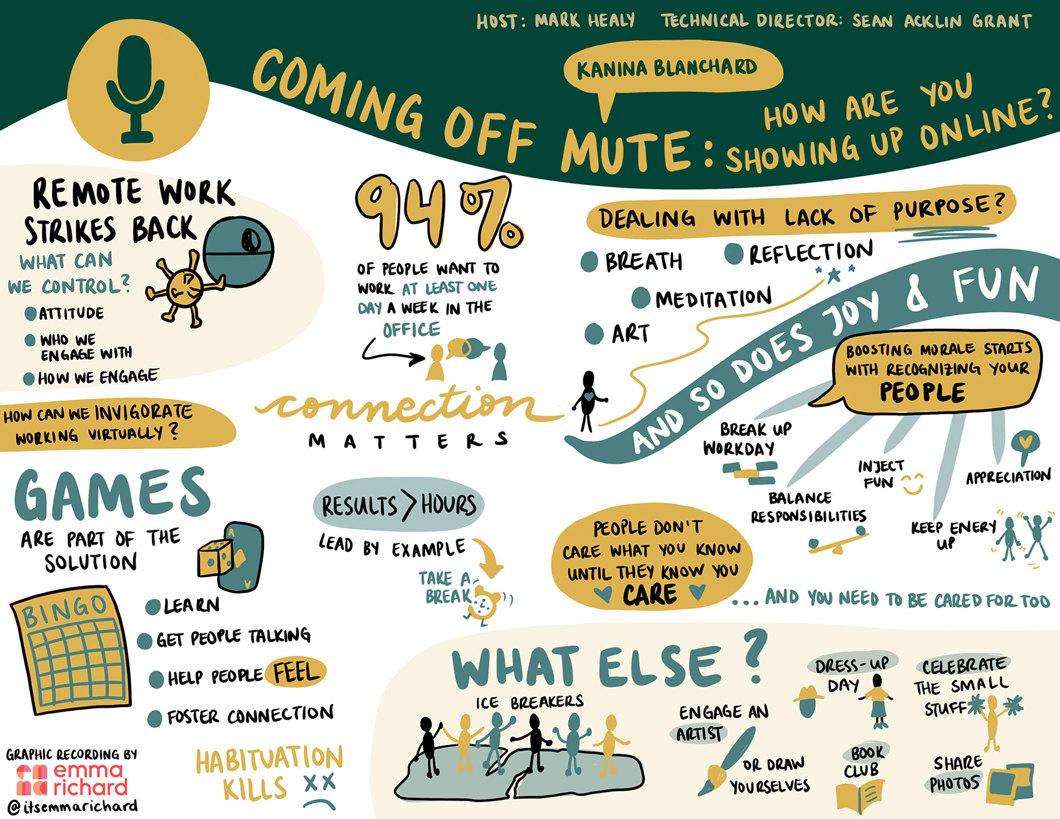 HOST: MARK HEALY TECHNICAL DIRECTOR: SEAN ACKLIN GRANT
KANINA BLANCHARD
COMING OFF MUTE:
HOW ARE YOU
SHOWING UP ONLINE?
REMOTE WORK
STRIKES BACK
WHAT CAN
WE CONTROL?
ATTITUDE
WHO WE
ENGAGE WITH
HOW WE ENGAGE
94%
OF PEOPLE WANT TO
WORK AT LEAST ONE
DAY A WEEK IN THE
OFFICE
connection
MATTERS
DEALING WITH LACK OF PURPOSE?
BREATH
REFLECTION
MEDITATION
ART
AND SO DOES JOY & FUN
BOOSTING MORALE STARTS
WITH RECOGNIZING YOUR
PEOPLE
BREAK UP
WORKDAY
BALANCE
RESPONSIBILITIES
INJECT
FUN
KEEP ENERY
UP
APPRECIATION
HOW CAN WE INVIGORATE
WORKING VIRTUALLY?
GAMES
ARE PART OF THE
SOLUTION
BINGO
LEARN
GET PEOPLE TALKING
HELP PEOPLE FEEL
FOSTER CONNECTION
RESULTS > HOURS
LEAD BY EXAMPLE
TAKE A
BREAK
PEOPLE DON'T
CARE WHAT YOU KNOW
UNTIL THEY KNOW YOU
CARE
...AND YOU NEED TO BE CARED FOR TOO
WHAT ELSE?
ICE BREAKERS
ENGAGE AN
ARTIST
OR DRAW
YOURSELVES
DRESS-UP
DAY
BOOK
CLUB
CELEBRATE
THE SMALL
STUFF
SHARE
PHOTOS
HABITUATION
KILLS
GRAPHIC RECORDING BY
emma
richard
@itsemmarichard